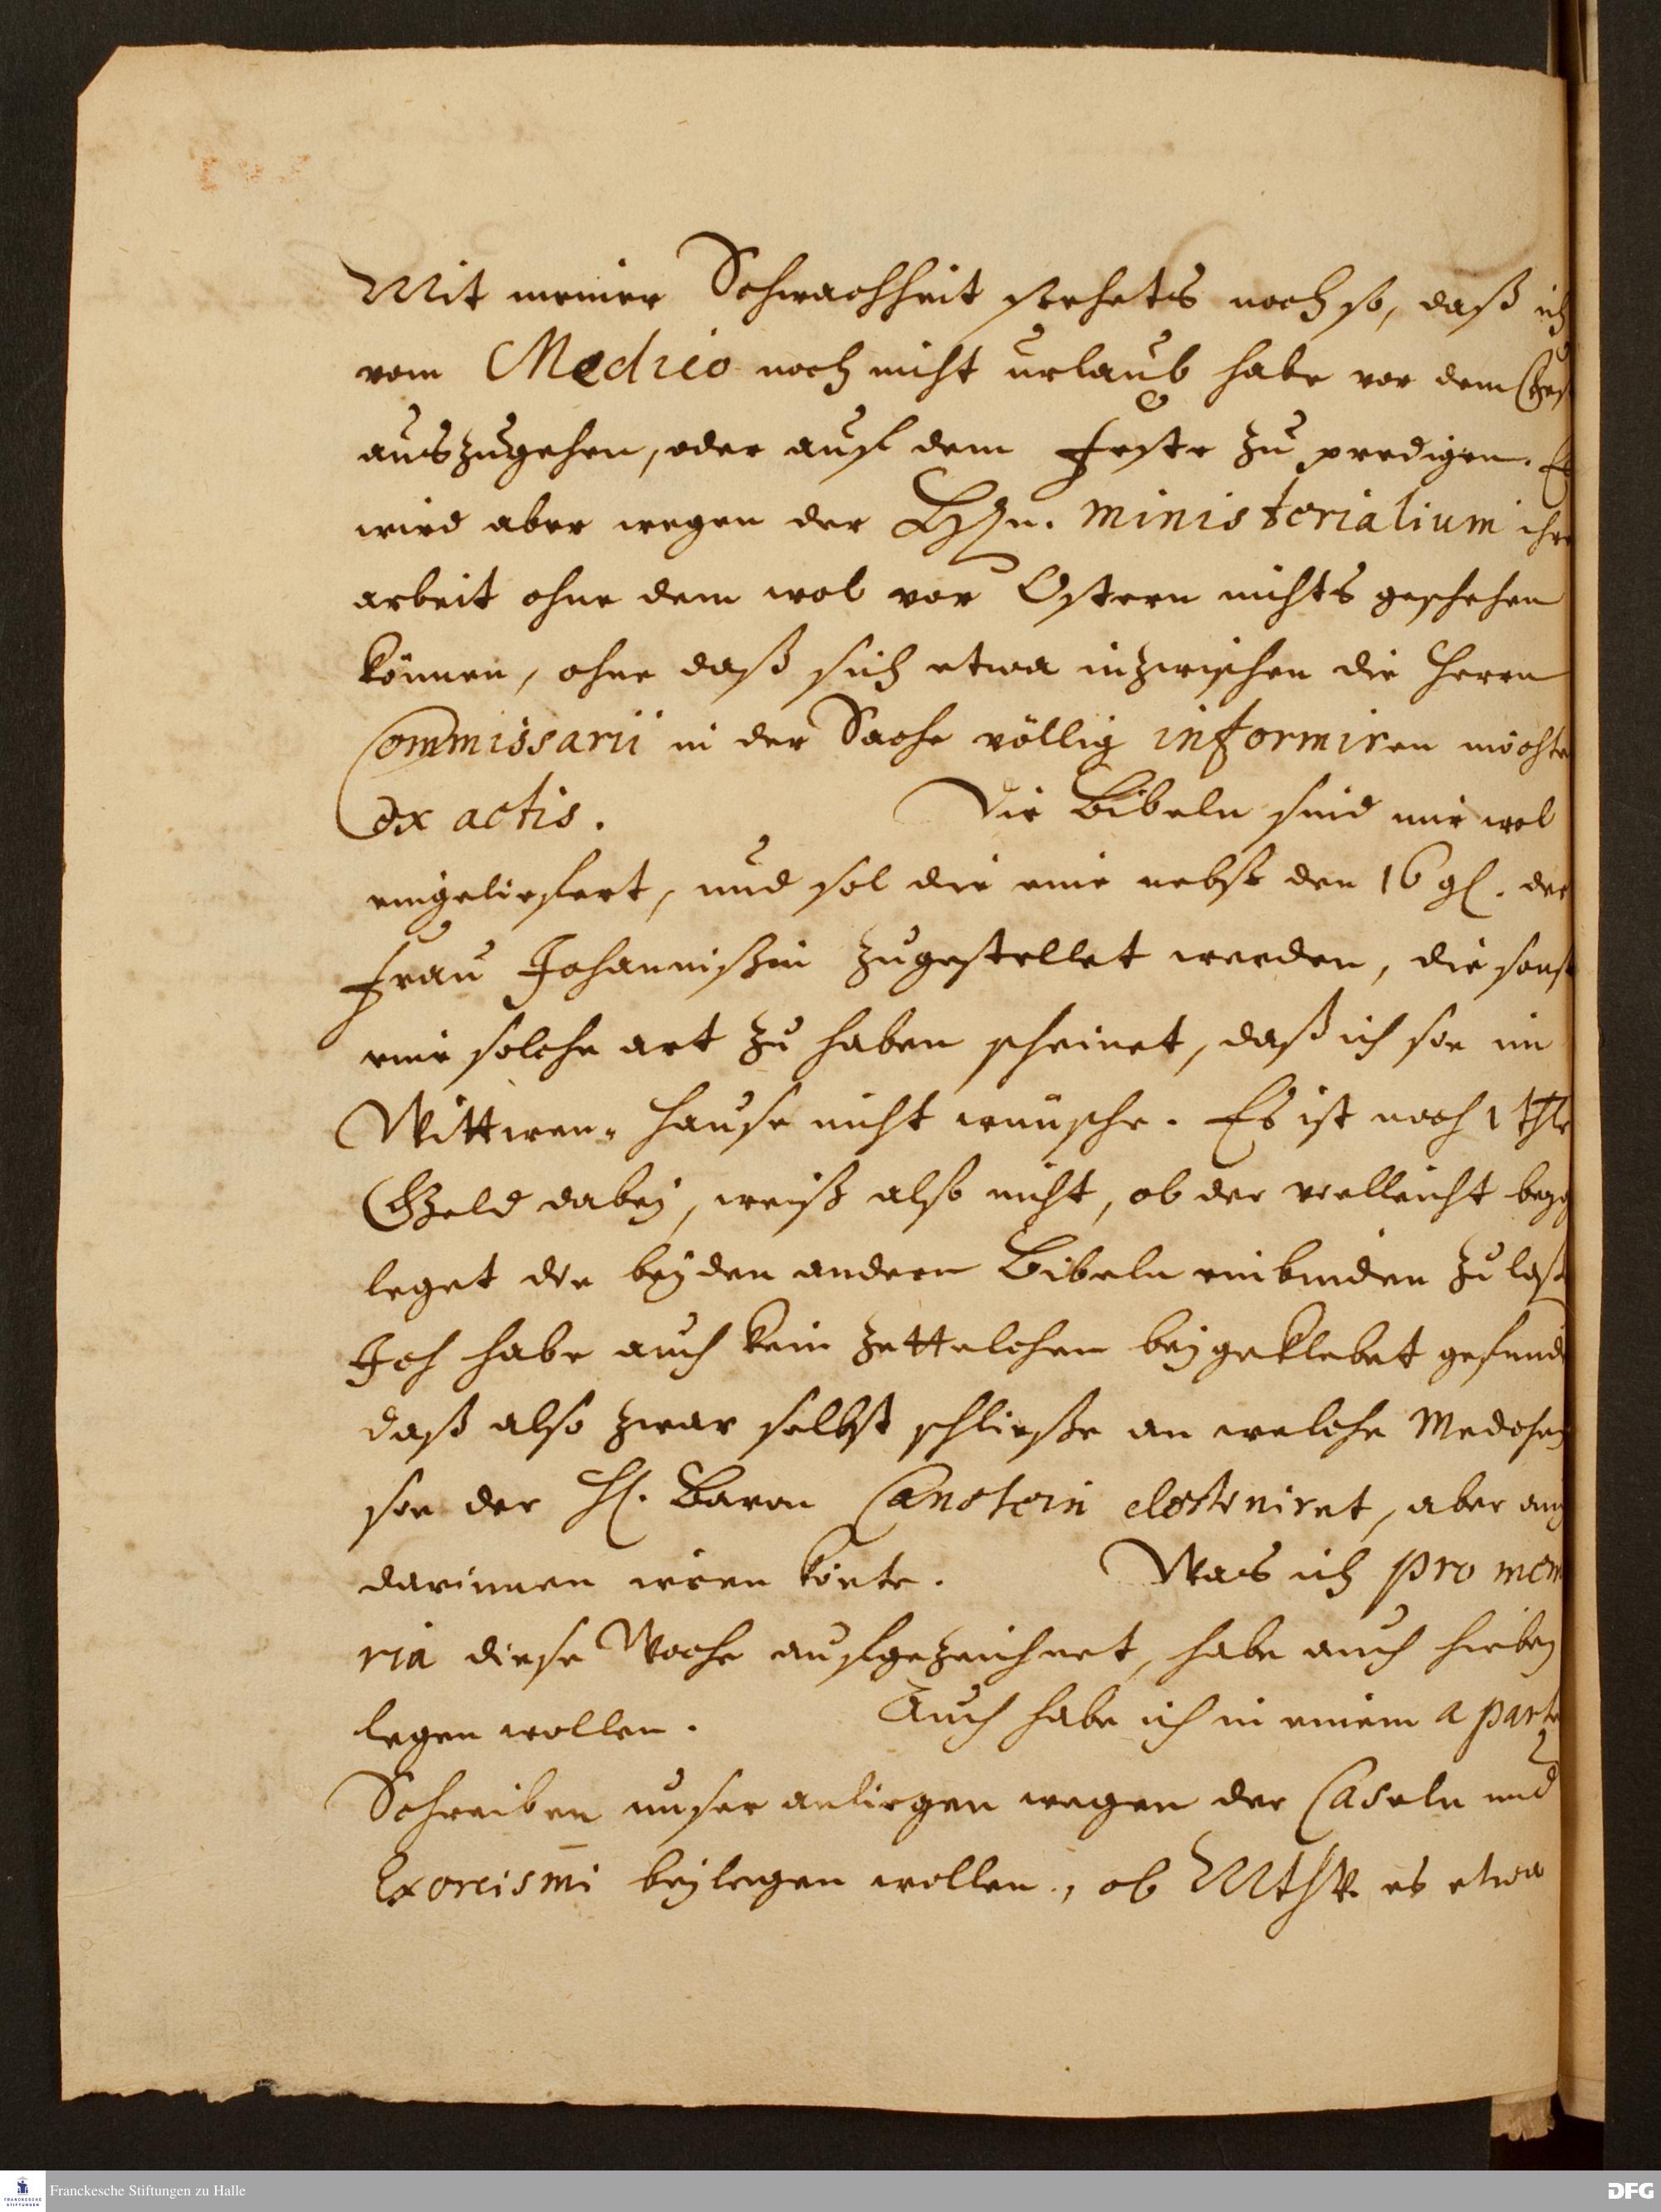 Mit meiner Schwachheit stehets noch so, daß ich
vom Medico noch nicht urlaub habe vor dem Fest
auszugehen, oder auf dem Feste zu predigen. Es
wird aber wegen der HHn. ministerialium ihre
arbeit ohne dem wol vor Ostern nichts geschehen
können, ohne daß sich etwa inzwischen die Herrn
Commissarii in der Sache völlig informiren möchte
ex actis. Die Bibeln sind mir wol
eingeliefert, und sol die eine nebst den 16 gl. der
Frau Johannißin zugestellet werden, die sonst
eine solche art zu haben scheinet, daß ich sie im
Wittwen-Hause nicht wünsche. Es ist noch 1 thlr
Geld dabey, weiß also nicht, ob der vielleicht beyge
leget die beyden andern Bibeln einbinden zu laße
Ich habe auch kein Zettelchen beygeklebet gefunde
daß also zwar selbst schließe an welche Medchen
sie der H. Baron Canstein destiniret, aber auch
darinnen irren könte. Was ich pro memo
ria diese Woche aufgezeichnet, habe auch hiebey
legen wollen. Auch habe ich in einem a parte
Schreiben unser anliegen wegen der Caseln und
Exorcismi beylegen wollen, ob es etwa
Franckesche Stiftungen zu Halle
FRANCKESCHE STIFTUNGEN
DFG